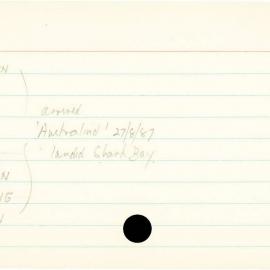 N
arrived
'Australind' 27/8/87
landed Shark Bay.
N
G
N